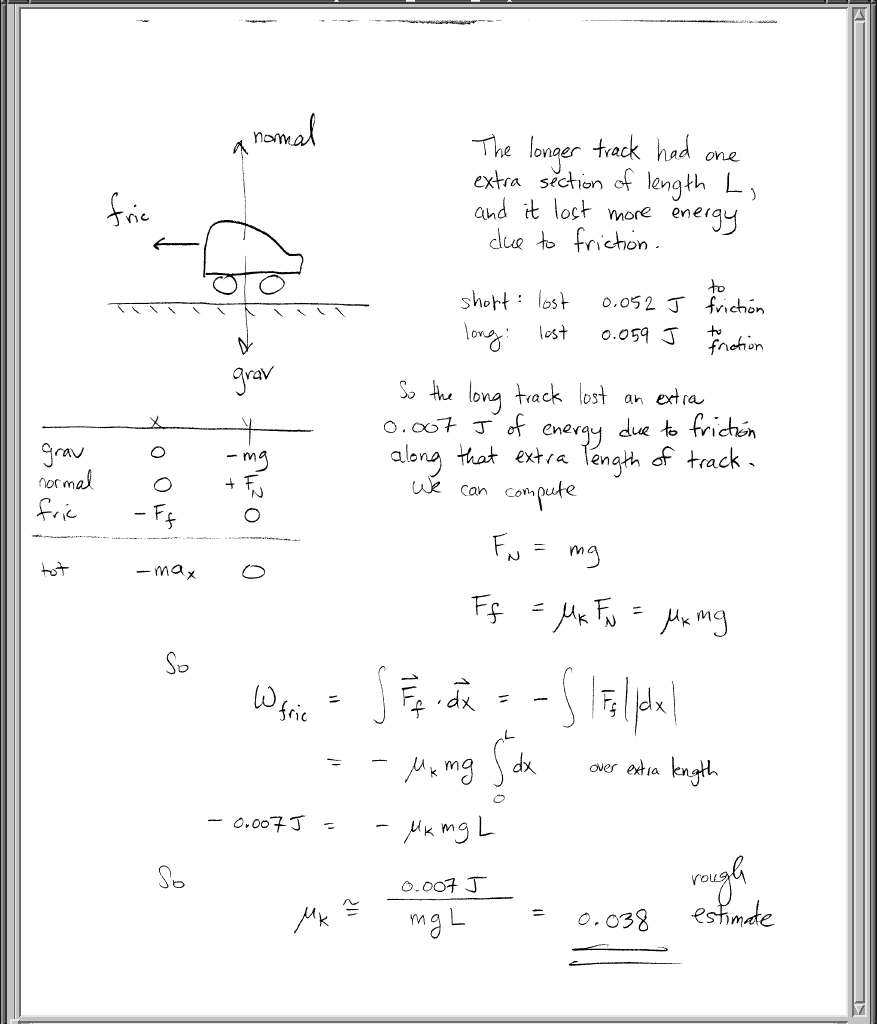 normal
fric
grav
The longer track had one
extra section of length L,
and it lost more energy
due to friction.
short: lost 0.052 J to friction
long: lost 0.059 J to friction
So the long track lost an extra
0.007 J of energy due to friction
along that extra length of track.
We can compute
x y
grav 0 -mg
normal 0 + F_N
fric - F_f 0
tot -ma_x 0
F_N = mg
F_f = μ_K F_N = μ_K mg
So
W_fric = ∫ F⃗_f · d⃗x = - ∫ |F⃗_f| |dx|
= - μ_K mg ∫_0^L dx over extra length
- 0.007 J = - μ_K mg L
So
μ_K ≅ 0.007 J / mg L = 0.038 rough estimate